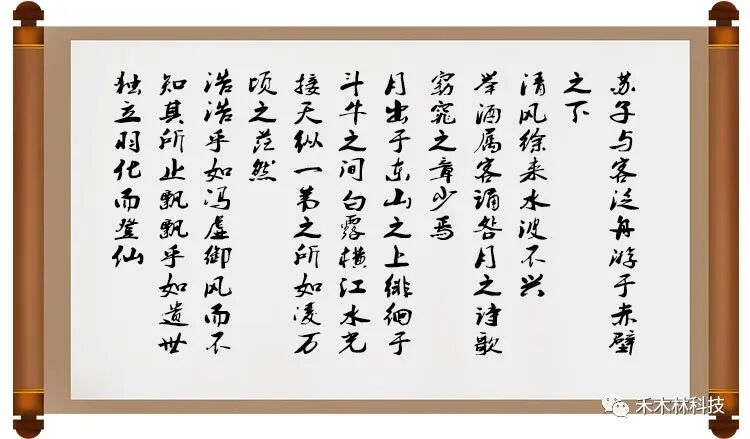 苏子与客泛舟游于赤壁
之下
清风徐来水波不兴
举酒属客诵明月之诗歌
窈窕之章少焉
月出于东山之上徘徊于
斗牛之间白露横江水光
接天纵一苇之所如凌万
顷之茫然
浩浩乎如冯虚御风而不
知其所止飘飘乎如遗世
独立羽化而登仙
禾木林科技